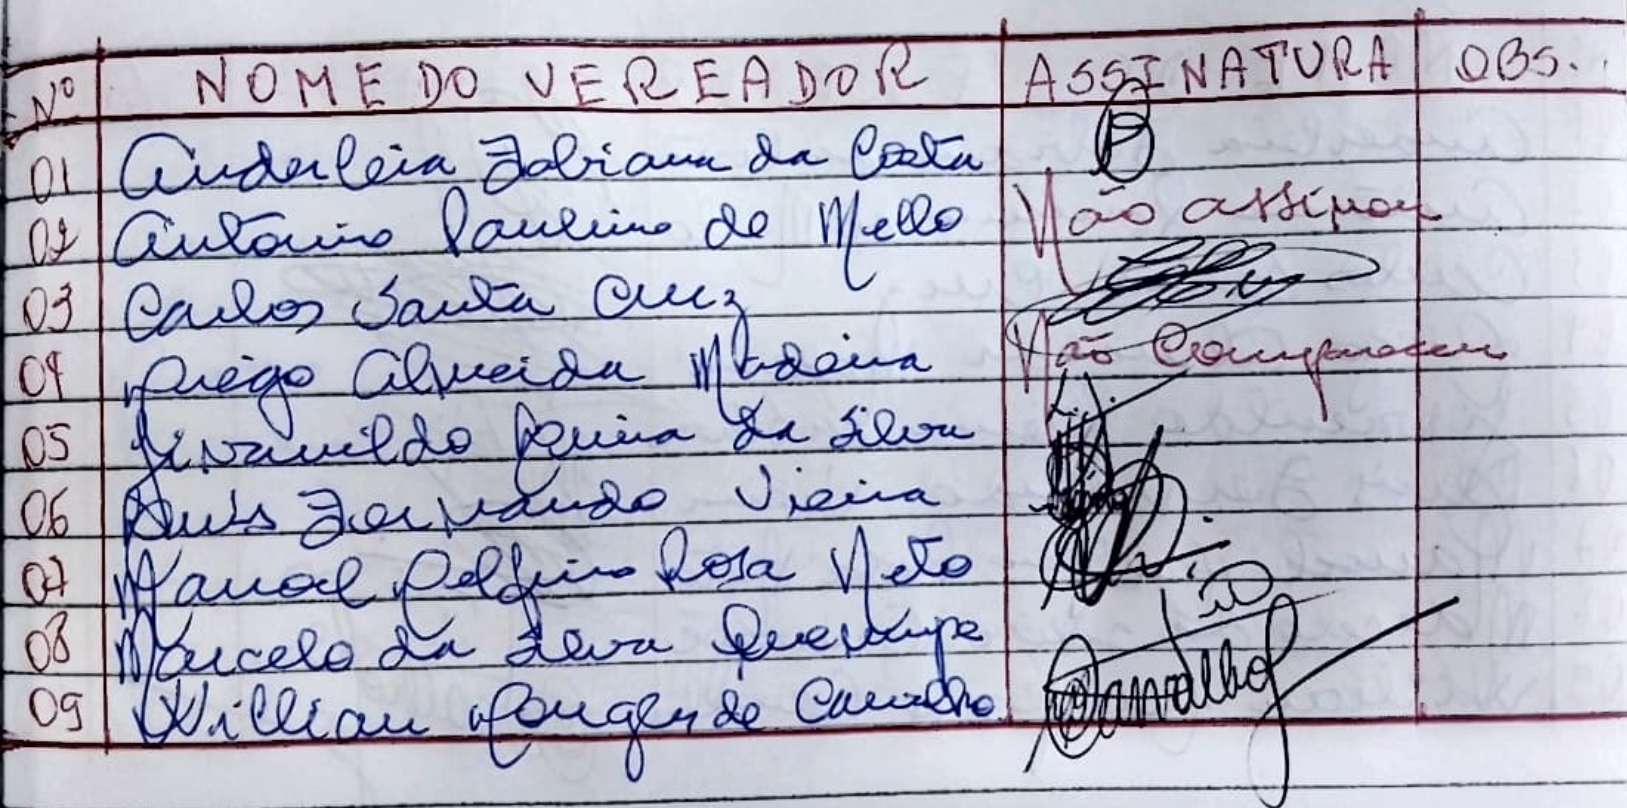 Nº NOME DO VEREADOR ASSINATURA OBS.
01 Anderleia Fabiana da Costa
02 Antonio Paulino de Mello Não assinou
03 Carlos Santa Cruz
04 Diego Almeida Madeira Não Compareceu
05 Jivanildo da Silva
06 Luis Fernando Vieira
07 Manoel Delfino Rosa Neto
08 Marcelo da Silva
09 Willian de Carvalho Carvalho